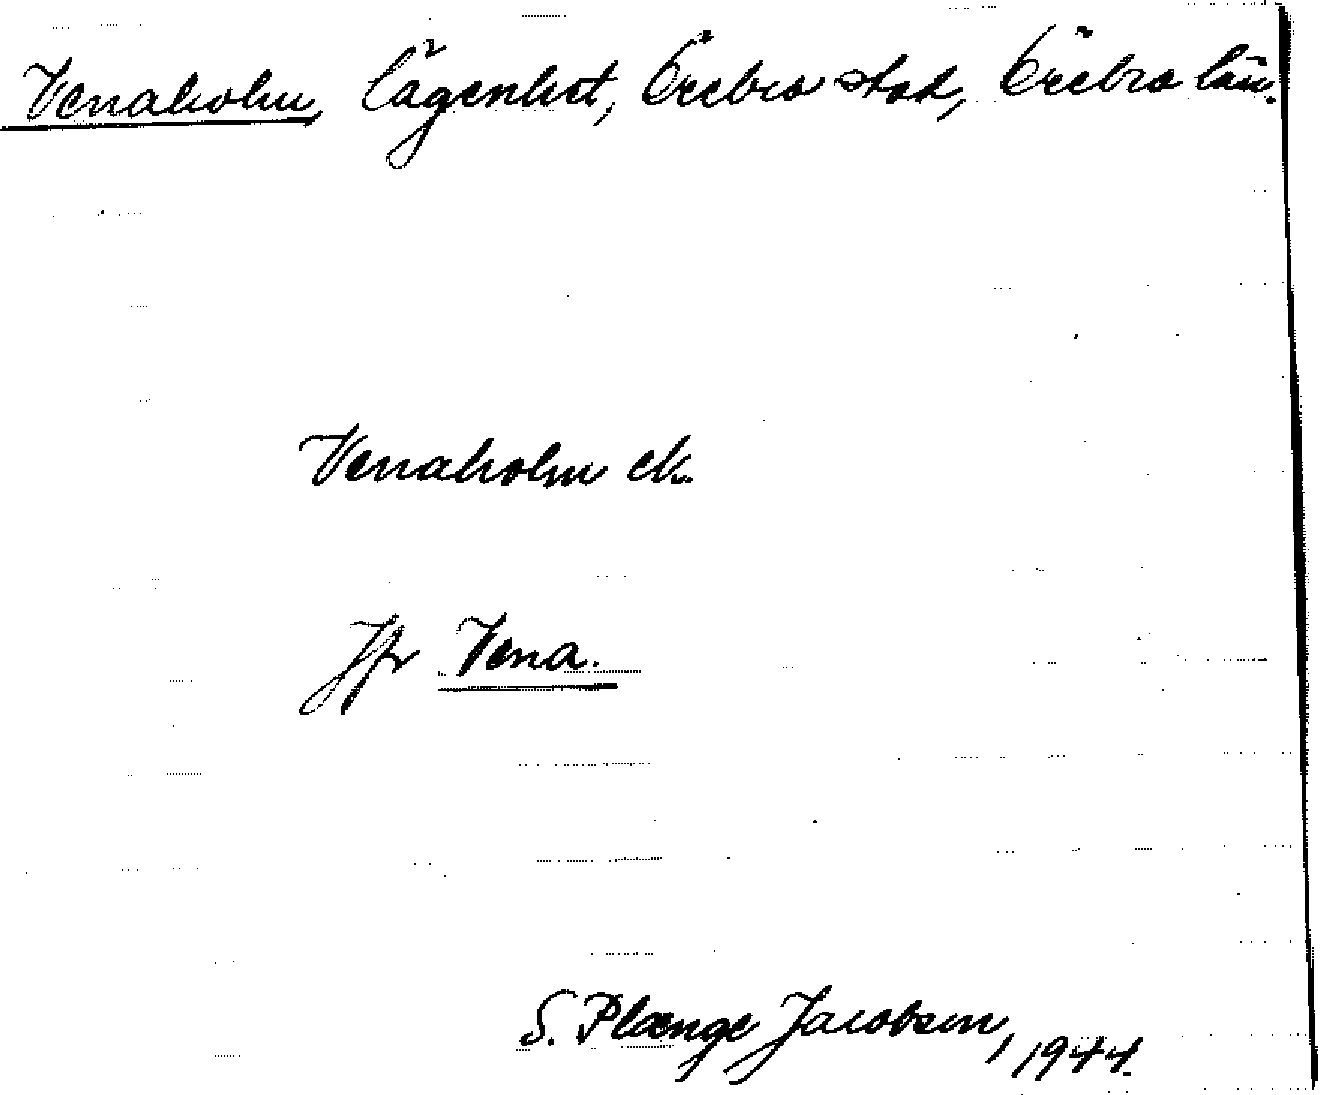 Venaholm, lägenhet, Örebro stad, Örebro län.
Venaholm ek.
Jfr Vena.
S. Plænge Jacobsen, 1944.